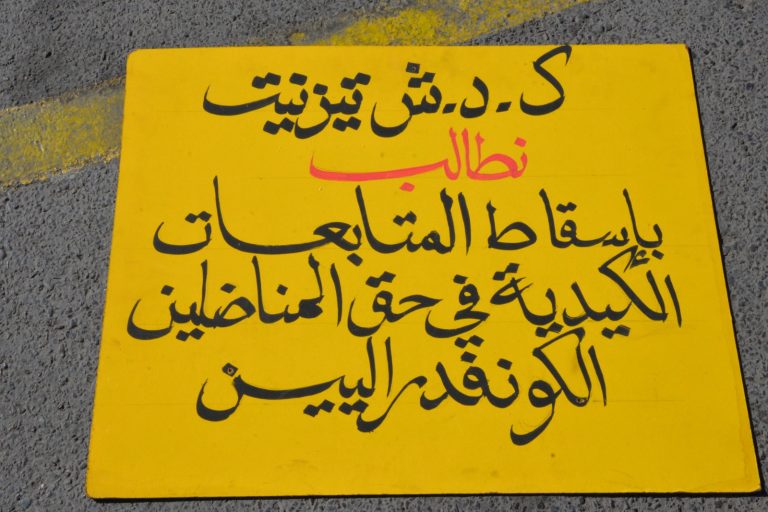 ك.د.ش تيزنيت
نطالب
بإسقاط المتابعات
الكيدية في حق المناضلين
الكونفدراليين